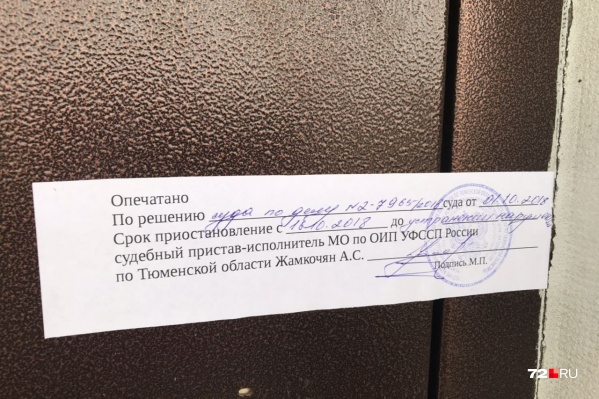 Опечатано
По решению суда по делу №2-7965/2018 суда от 01.10.2018
Срок приостановление с 16.10.2018 до устранения наруш
судебный пристав-исполнитель МО по ОИП УФССП России
по Тюменской области Жамкочян А.С.
Подпись М.П.
72.RU